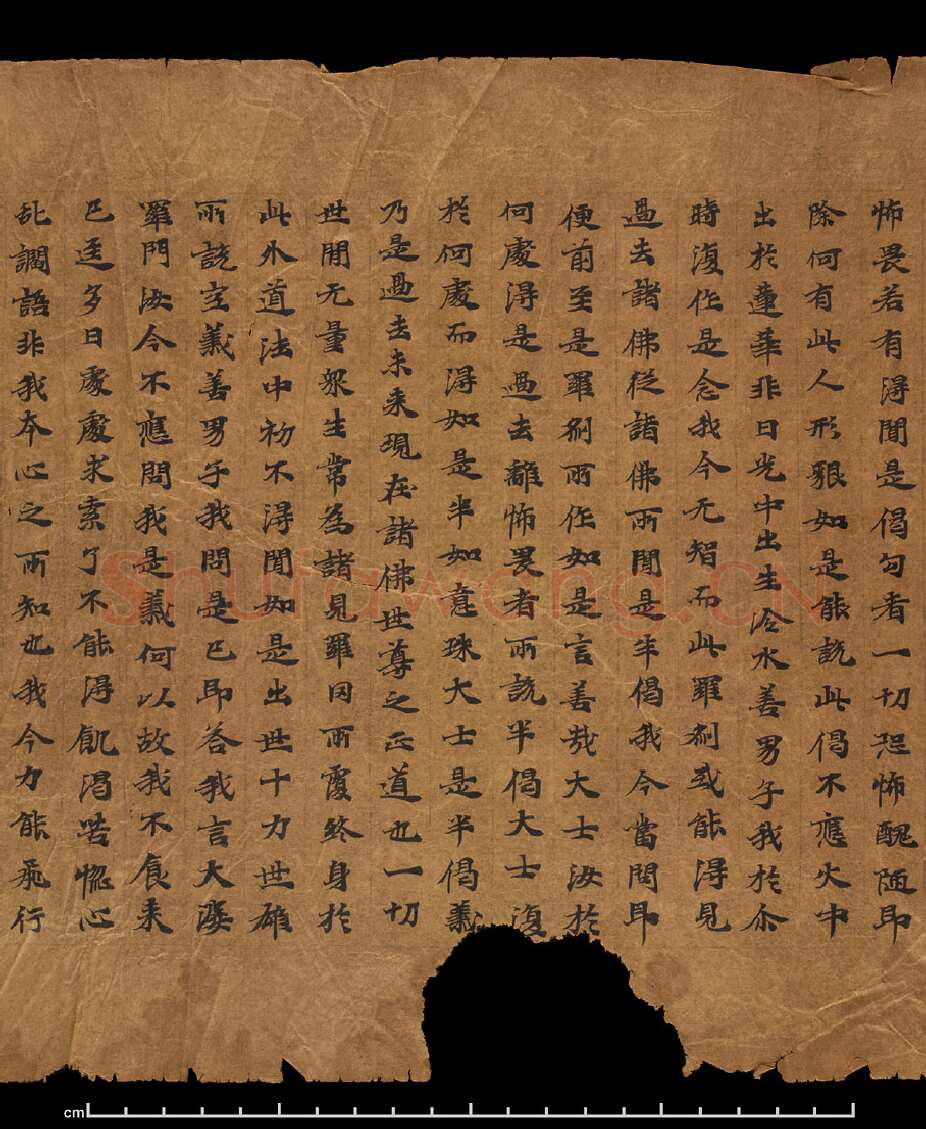 怖畏若有得聞是偈句者一切恐怖醜陋即
除何有此人形貌如是能說此偈不應火中
出於蓮華非日光中出生冷水善男子我於尒
時復作是念我今无智而此羅剎或能得見
過去諸佛從諸佛所聞是半偈我今當問即
便前至是羅剎所作如是言善哉大士汝於
何處得是過去離怖畏者所說半偈大士復
於何處而得如是半如意珠大士是半偈義
乃是過去未来現在諸佛世尊之正道也一切
世間无量眾生常為諸見羅冈所覆終身於
此外道法中初不得聞如是出世十力世雄
所說空義善男子我問是已即荅我言大婆
羅門汝今不應問我是義何以故我不食来
已逕多日處處求索了不能得飢渴苦惱心
乱讇語非我本心之所知也我今力能飛行
Shufawang.CN
cm